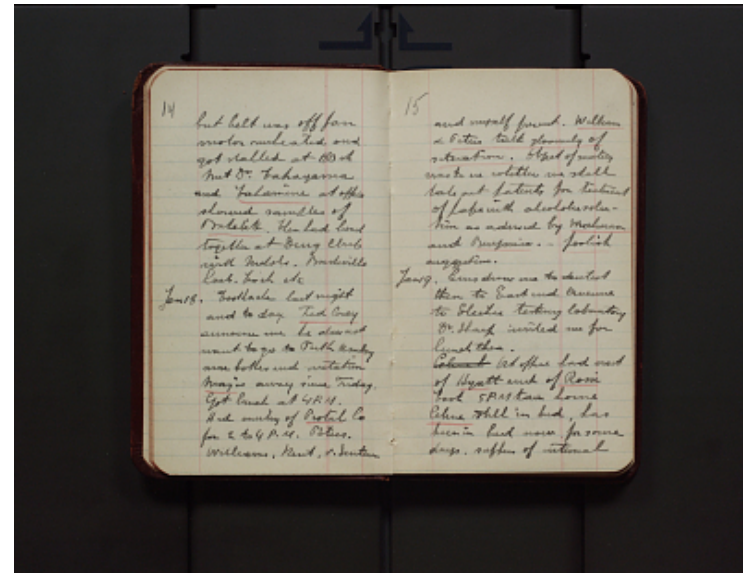 14
but belt was off fan
motor overheated and
got stalled at
Met Dr. Takayama
and Takamine at office
showed samples of
Bakelite. Then had lunch
together at Drug Club
with
etc
Jan 18. last night
and to day Ted Corey
announce me he does not
want to go to Perth Amboy
away since Friday.
Got lunch at 4 P.M.
meeting of Protal Co
for 2 to 4 P.M. Peters.
Williams,
15
and myself present. William
& Peters talk gloomily of
situation. Object of meeting
was to see whether we shall
take out patents for treatment
of with
as advised by
and foolish
suggestion.
Jan 19. drove me to dentist
then to East end Avenue
to Electric testing laboratory
Dr. Sharp invited me for
lunch there.
At office had visit
of Hyatt and of Rossi
took 5 P.M train home
Celine still in bed, has
been in bed now for some
days. suffers of internal